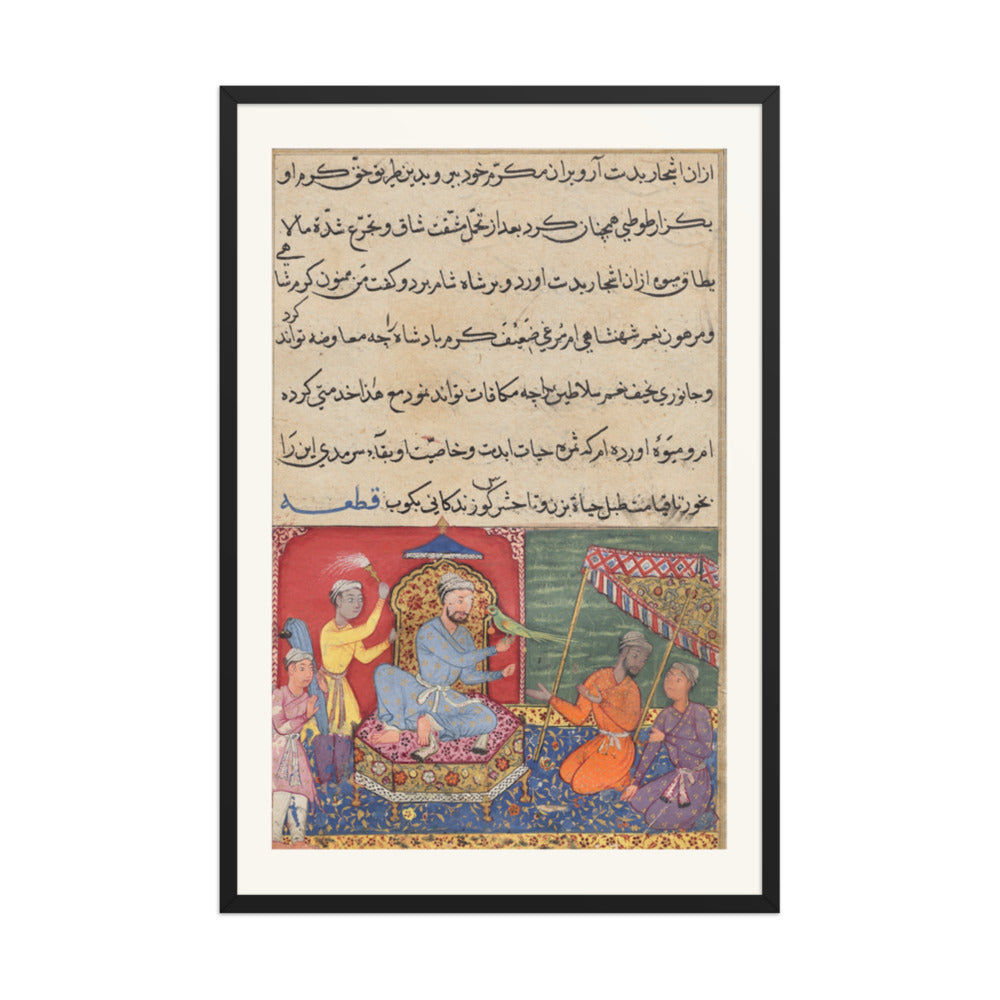 ازان اشجار بدست آر و بران مکرّم خود ببر و بدین طریق حقّ کرم او
بگزار طوطی همچنان کرد بعد از تحمّل مشقّت شاق و تجرّع شدّة مالا
هی
یطاق میوه ازان اشجار بدست اورد و بر شاه شام برد و گفت من ممنون کرم شا
کرد
و مرهون نعم شهنشاهی ام مرغی ضعیف کرم بادشاه را چه معاوضه تواند
و جانوری نحیف نعم سلاطین را چه مکافات تواند نمود مع هذا خدمتی کرده
ام و میوۀ اورده ام که ثمره حیات ابدست و خاصیّت او بقاء سرمدی این را
بخور تا قیامت طبل حیاة بزن و تا حشر کوس زندکانی بکوب قطعه